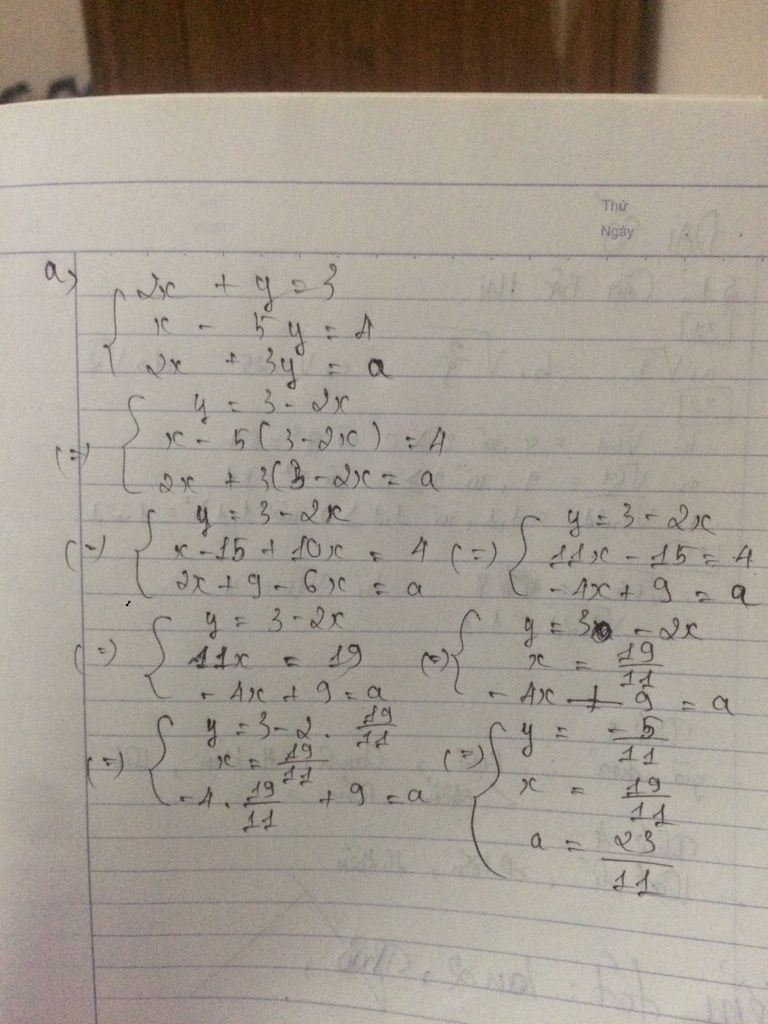 Thứ
Ngày
a) { 2x + y = 3
x - 5y = 4
2x + 3y = a
(=) { y = 3 - 2x
x - 5(3 - 2x) = 4
2x + 3(3 - 2x = a
(=) { y = 3 - 2x
x - 15 + 10x = 4
2x + 9 - 6x = a
(=) { y = 3 - 2x
11x - 15 = 4
- 4x + 9 = a
(=) { y = 3 - 2x
11x = 19
- 4x + 9 = a
(=) { y = 3 - 2x
x = 19/11
- 4x + 9 = a
(=) { y = 3 - 2 . 19/11
x = 19/11
- 4 . 19/11 + 9 = a
(=) { y = -5/11
x = 19/11
a = 23/11